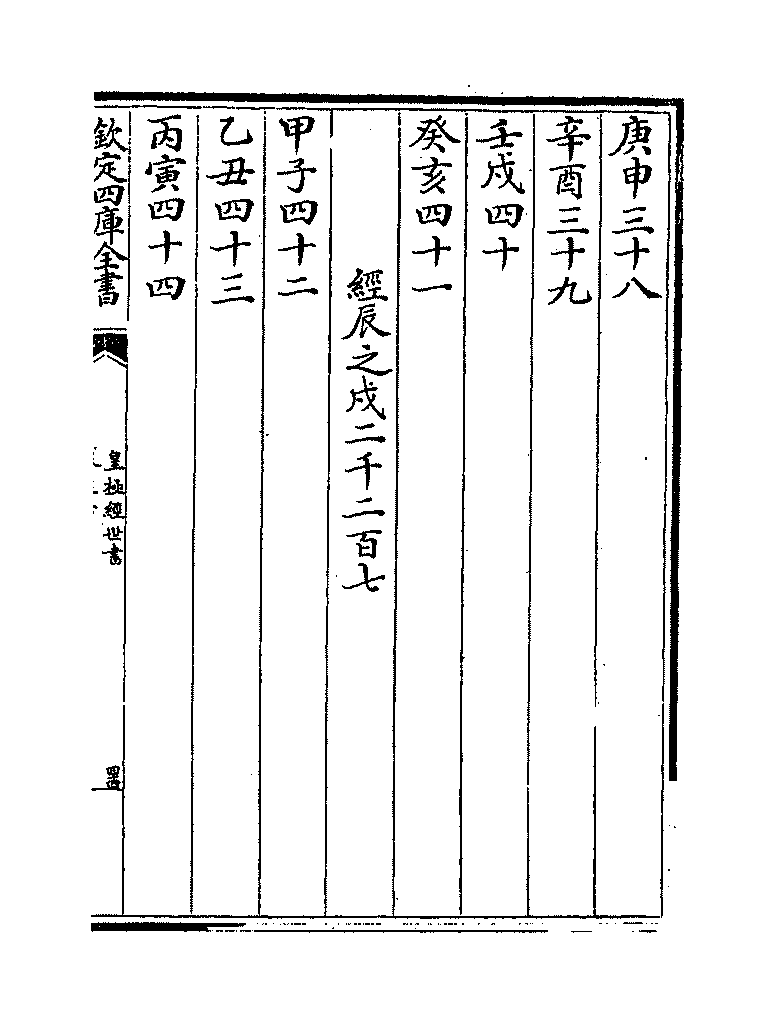 庚申三十八
辛酉三十九
壬戌四十
癸亥四十一
經辰之戌二千二百七
甲子四十二
乙丑四十三
丙寅四十四
欽定四庫全書
皇極經世書